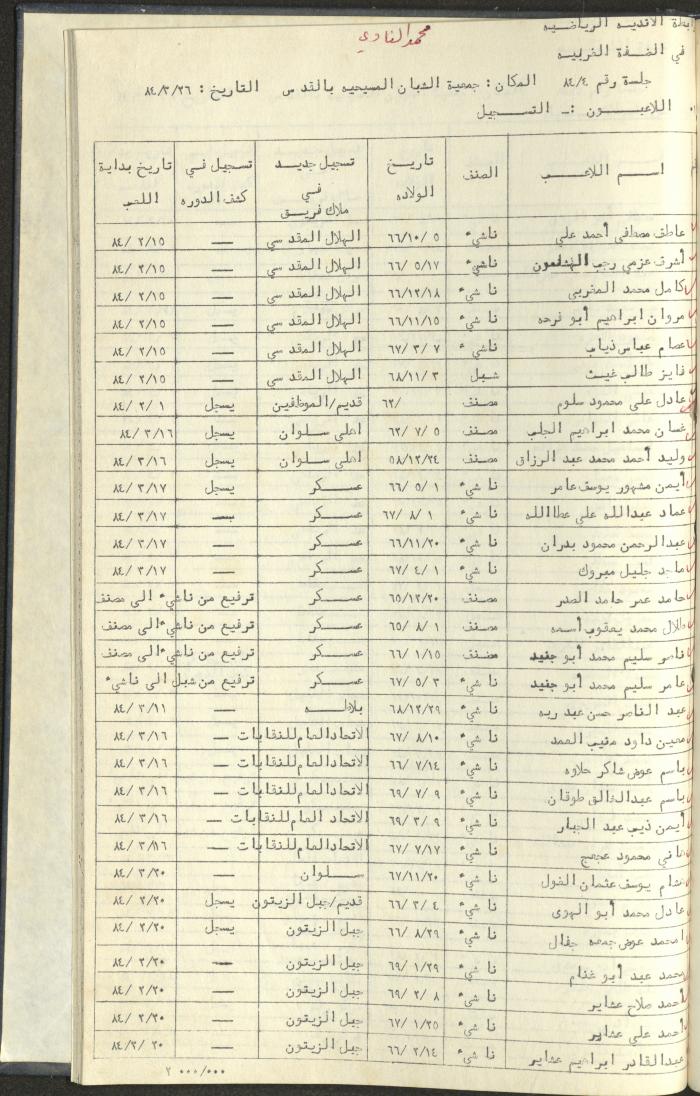 محمد الفادي
رابطة الاندية الرياضيه
في الضفة الغربيه
جلسة رقم ٨٤/٤ المكان : جمعية الشبان المسيحيه بالقدس التاريخ : ٨٤/٣/٢٦
اللاعبــون :ـ التسجيل
اسم اللاعب الصنف تاريخ الولاده تسجيل جديد في ملاك فريق تسجيل في كشف الدوره تاريخ بداية اللعب
عاطف مصطفى أحمد علي ناشيء ٥ /٦٦/١٠ الهلال المقدسي — ٨٤/ ٢/١٥
أشرف عزمي رجب ناشيء ٦٦/ ٥/١٧ الهلال المقدسي — ٨٤/ ٢/١٥
كامل محمد المغربي ناشيء ٦٦/١٢/١٨ الهلال المقدسي — ٨٤/ ٢/١٥
مروان ابراهيم أبو فرحه ناشيء ٦٦/١١/١٥ الهلال المقدسي — ٨٤/ ٢/١٥
عصام عباس ذياب ناشيء ٦٧/ ٣/ ٧ الهلال المقدسي — ٨٤/ ٢/١٥
فايز طالب غيث شبل ٦٨/١١/ ٣ الهلال المقدسي — ٨٤/ ٢/١٥
عادل علي محمود سلوم مصنف /٦٢ قديم/الموظفين يسجل ٨٤/ ٢/ ١
غسان محمد ابراهيم الجلب مصنف ٦٢/ ٧/ ٥ اهلي سلوان يسجل ٨٤/ ٣/١٦
وليد أحمد محمد عبد الرزاق مصنف ٥٨/١٢/٢٤ اهلي سلوان يسجل ٨٤/ ٣/١٦
أيمن مشهور يوسف عامر ناشيء ٦٦/ ٥/ ١ عسكر يسجل ٨٤/ ٣/١٧
عماد عبدالله علي عطاالله ناشيء ٦٧/ ٨/ ١ عسكر — ٨٤/ ٣/١٧
عبدالرحمن محمود بدران ناشيء ٦٦/١١/٢٠ عسكر — ٨٤/ ٣/١٧
ماجد جليل مبروك ناشيء ٦٧/ ٤/ ١ عسكر — ٨٤/ ٣/١٧
حامد عمر حامد الصدر مصنف ٦٥/١٢/٢٠ عسكر ترفيع من ناشيء الى مصنف
طلال محمد يعقوب أسعد مصنف ٦٥/ ٨/ ١ عسكر ترفيع من ناشيء الى مصنف
ناصر سليم محمد أبو جنيد مصنف ٦٦/ ١/١٥ عسكر ترفيع من ناشيء الى مصنف
عامر سليم محمد أبو جنيد ناشيء ٦٧/ ٥/ ٣ عسكر ترفيع من شبل الى ناشيء
عبد الناصر حسن عبد ربه ناشيء ٦٨/١٢/٢٩ بلاطه — ٨٤/ ٣/١١
معين داود منيب الصمد ناشيء ٦٧/ ٨/١٠ الاتحاد العام للنقابات — ٨٤/ ٣/١٦
باسم عوض شاكر حلاوه ناشيء ٦٦/ ٧/١٤ الاتحاد العام للنقابات — ٨٤/ ٣/١٦
باسم عبدالخالق طوقان ناشيء ٦٩/ ٧/ ٩ الاتحاد العام للنقابات — ٨٤/ ٣/١٦
أيمن ذيب عبد الجبار ناشيء ٦٩/ ٣/ ٩ الاتحاد العام للنقابات — ٨٤/ ٣/١٦
هاني محمود عجعج ناشيء ٦٧/ ٧/١٧ الاتحاد العام للنقابات — ٨٤/ ٣/١٦
هشام يوسف عثمان الغول ناشيء ٦٧/١١/٢٠ سلوان — ٨٤/ ٣/٢٠
عادل محمد أبو الهوى ناشيء ٦٦/ ٣/ ٤ قديم/جبل الزيتون يسجل ٨٤/ ٣/٢٠
امحمد عوض جمعه جفال ناشيء ٦٦/ ٨/٢٩ جبل الزيتون يسجل ٨٤/ ٣/٢٠
محمد عبد أبو غنام ناشيء ٦٩/ ١/٢٩ جبل الزيتون — ٨٤/ ٣/٢٠
أحمد صلاح عشاير ناشيء ٦٩/ ٢/ ٨ جبل الزيتون — ٨٤/ ٣/٢٠
أحمد علي عشاير ناشيء ٦٧/ ١/٢٥ جبل الزيتون — ٨٤/ ٣/٢٠
عبدالقادر ابراهيم عشاير ناشيء ٦٦/ ٢/١٤ جبل الزيتون — ٨٤/٣/ ٢٠
٠٠٠/٠٠٠ ٢